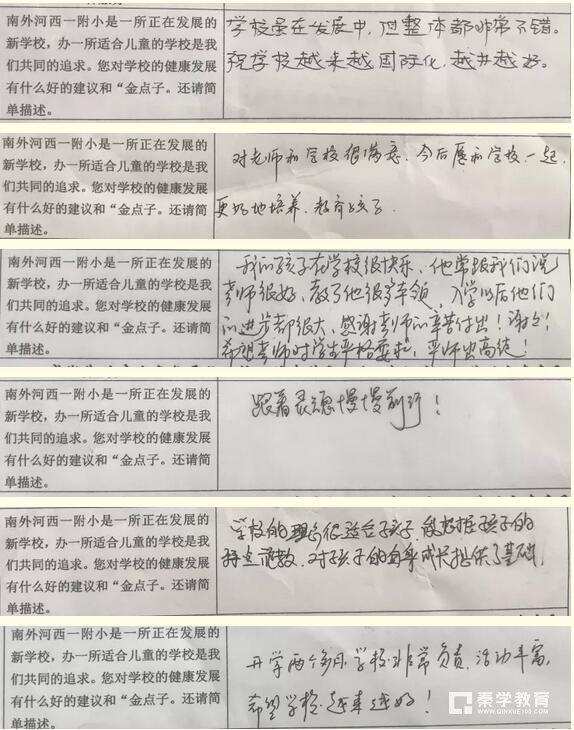 南外河西一附小是一所正在发展的
新学校，办一所适合儿童的学校是我
们共同的追求。您对学校的健康发展
有什么好的建议和“金点子。还请简
单描述。
学校虽在发展中，但整体都非常不错。
祝学校越来越国际化，越办越好。
南外河西一附小是一所正在发展的
新学校，办一所适合儿童的学校是我
们共同的追求。您对学校的健康发展
有什么好的建议和“金点子。还请简
单描述。
对老师和学校很满意，今后愿和学校一起，
更好地培养、教育孩子．
南外河西一附小是一所正在发展的
新学校，办一所适合儿童的学校是我
们共同的追求。您对学校的健康发展
有什么好的建议和“金点子。还请简
单描述。
我的孩子在学校很快乐、他常跟我们说
老师很好、教了他很多本领，入学以后他们
的进步都很大、感谢老师的辛苦付出！谢谢！
希望老师对学生严格要求，严师出高徒！
南外河西一附小是一所正在发展的
新学校，办一所适合儿童的学校是我
们共同的追求。您对学校的健康发展
有什么好的建议和“金点子。还请简
单描述。
跟着灵魂慢慢前行！
南外河西一附小是一所正在发展的
新学校，办一所适合儿童的学校是我
们共同的追求。您对学校的健康发展
有什么好的建议和“金点子。还请简
单描述。
学校的理念很适合孩子，能根据孩子的
特点施教，对孩子的自身成长提供了基础．
南外河西一附小是一所正在发展的
新学校，办一所适合儿童的学校是我
们共同的追求。您对学校的健康发展
有什么好的建议和“金点子。还请简
单描述。
开学两个多月，学校非常负责，活动丰富，
希望学校越来越好！
秦学教育
WWW.QINXUE100.COM